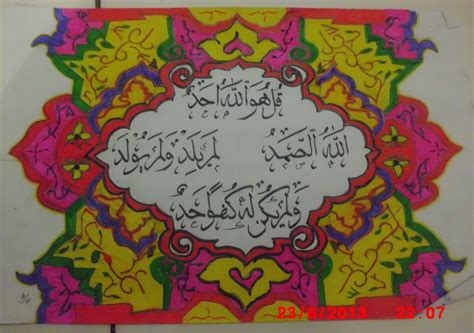 قُلْ هُوَ اللهُ أَحَدٌ
اللهُ الصَّمَدُ لَمْ يَلِدْ وَلَمْ يُوْلَدْ
وَلَمْ يَكُنْ لَهُ كُفُوًا حَدٌ
96
23/6/2013